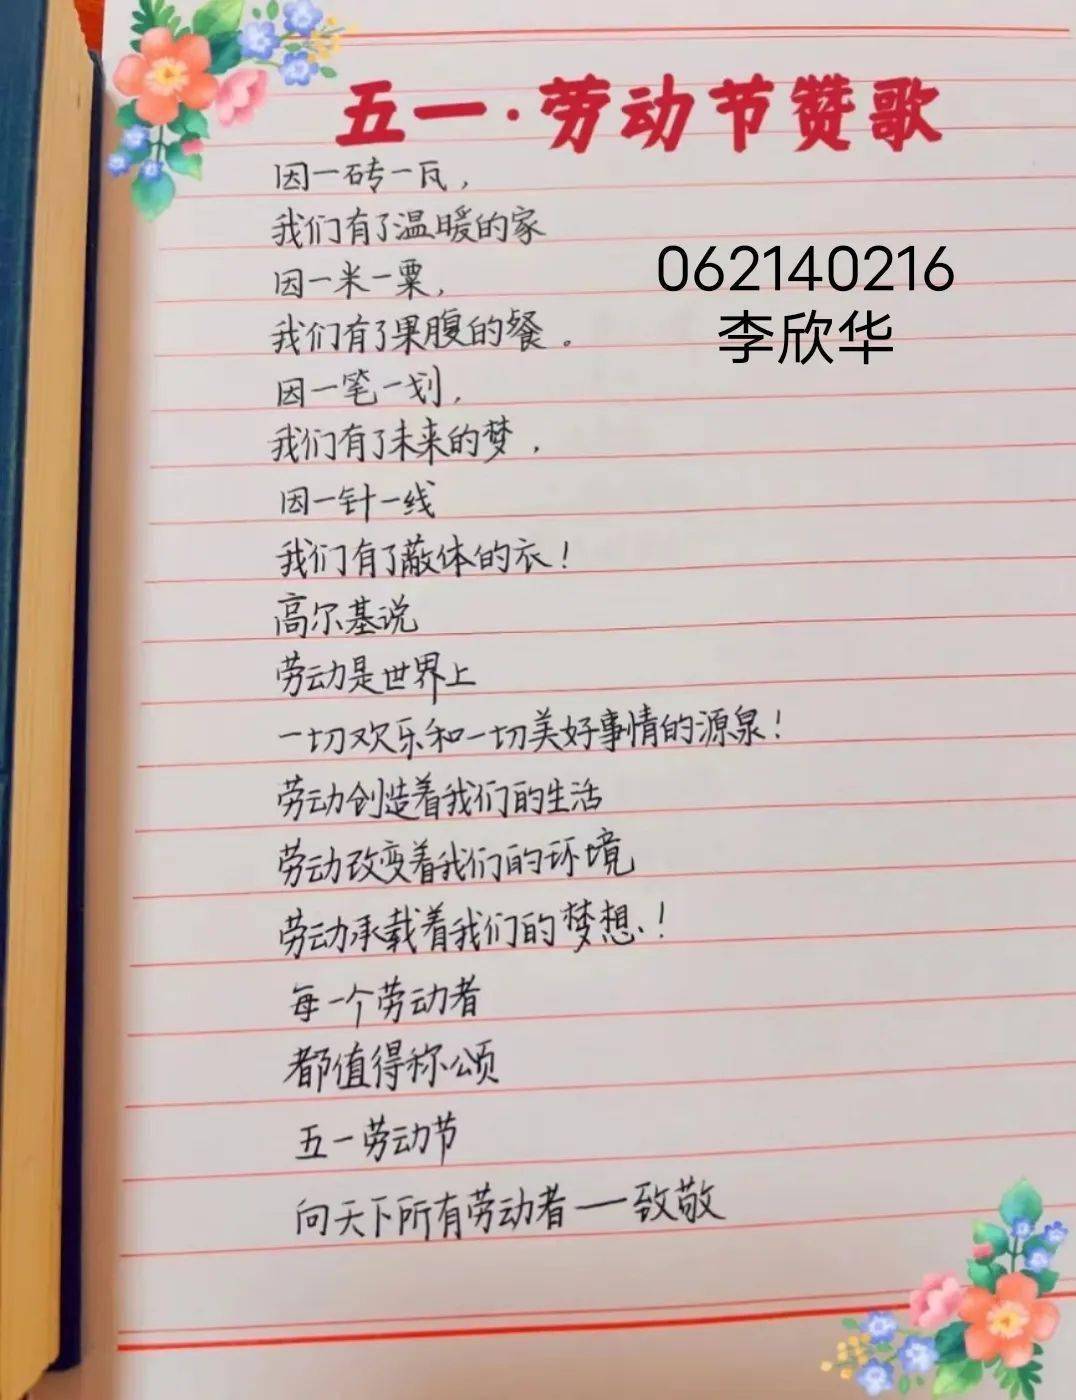 五一·劳动节赞歌
因一砖一瓦，
我们有了温暖的家
因一米一粟，
我们有了果腹的餐。
因一笔一划，
我们有了未来的梦，
因一针一线
我们有了蔽体的衣！
高尔基说
劳动是世界上
一切欢乐和一切美好事情的源泉！
劳动创造着我们的生活
劳动改变着我们的环境
劳动承载着我们的梦想！
每一个劳动者
都值得称颂
五一劳动节
向天下所有劳动者一致敬
062140216
李欣华